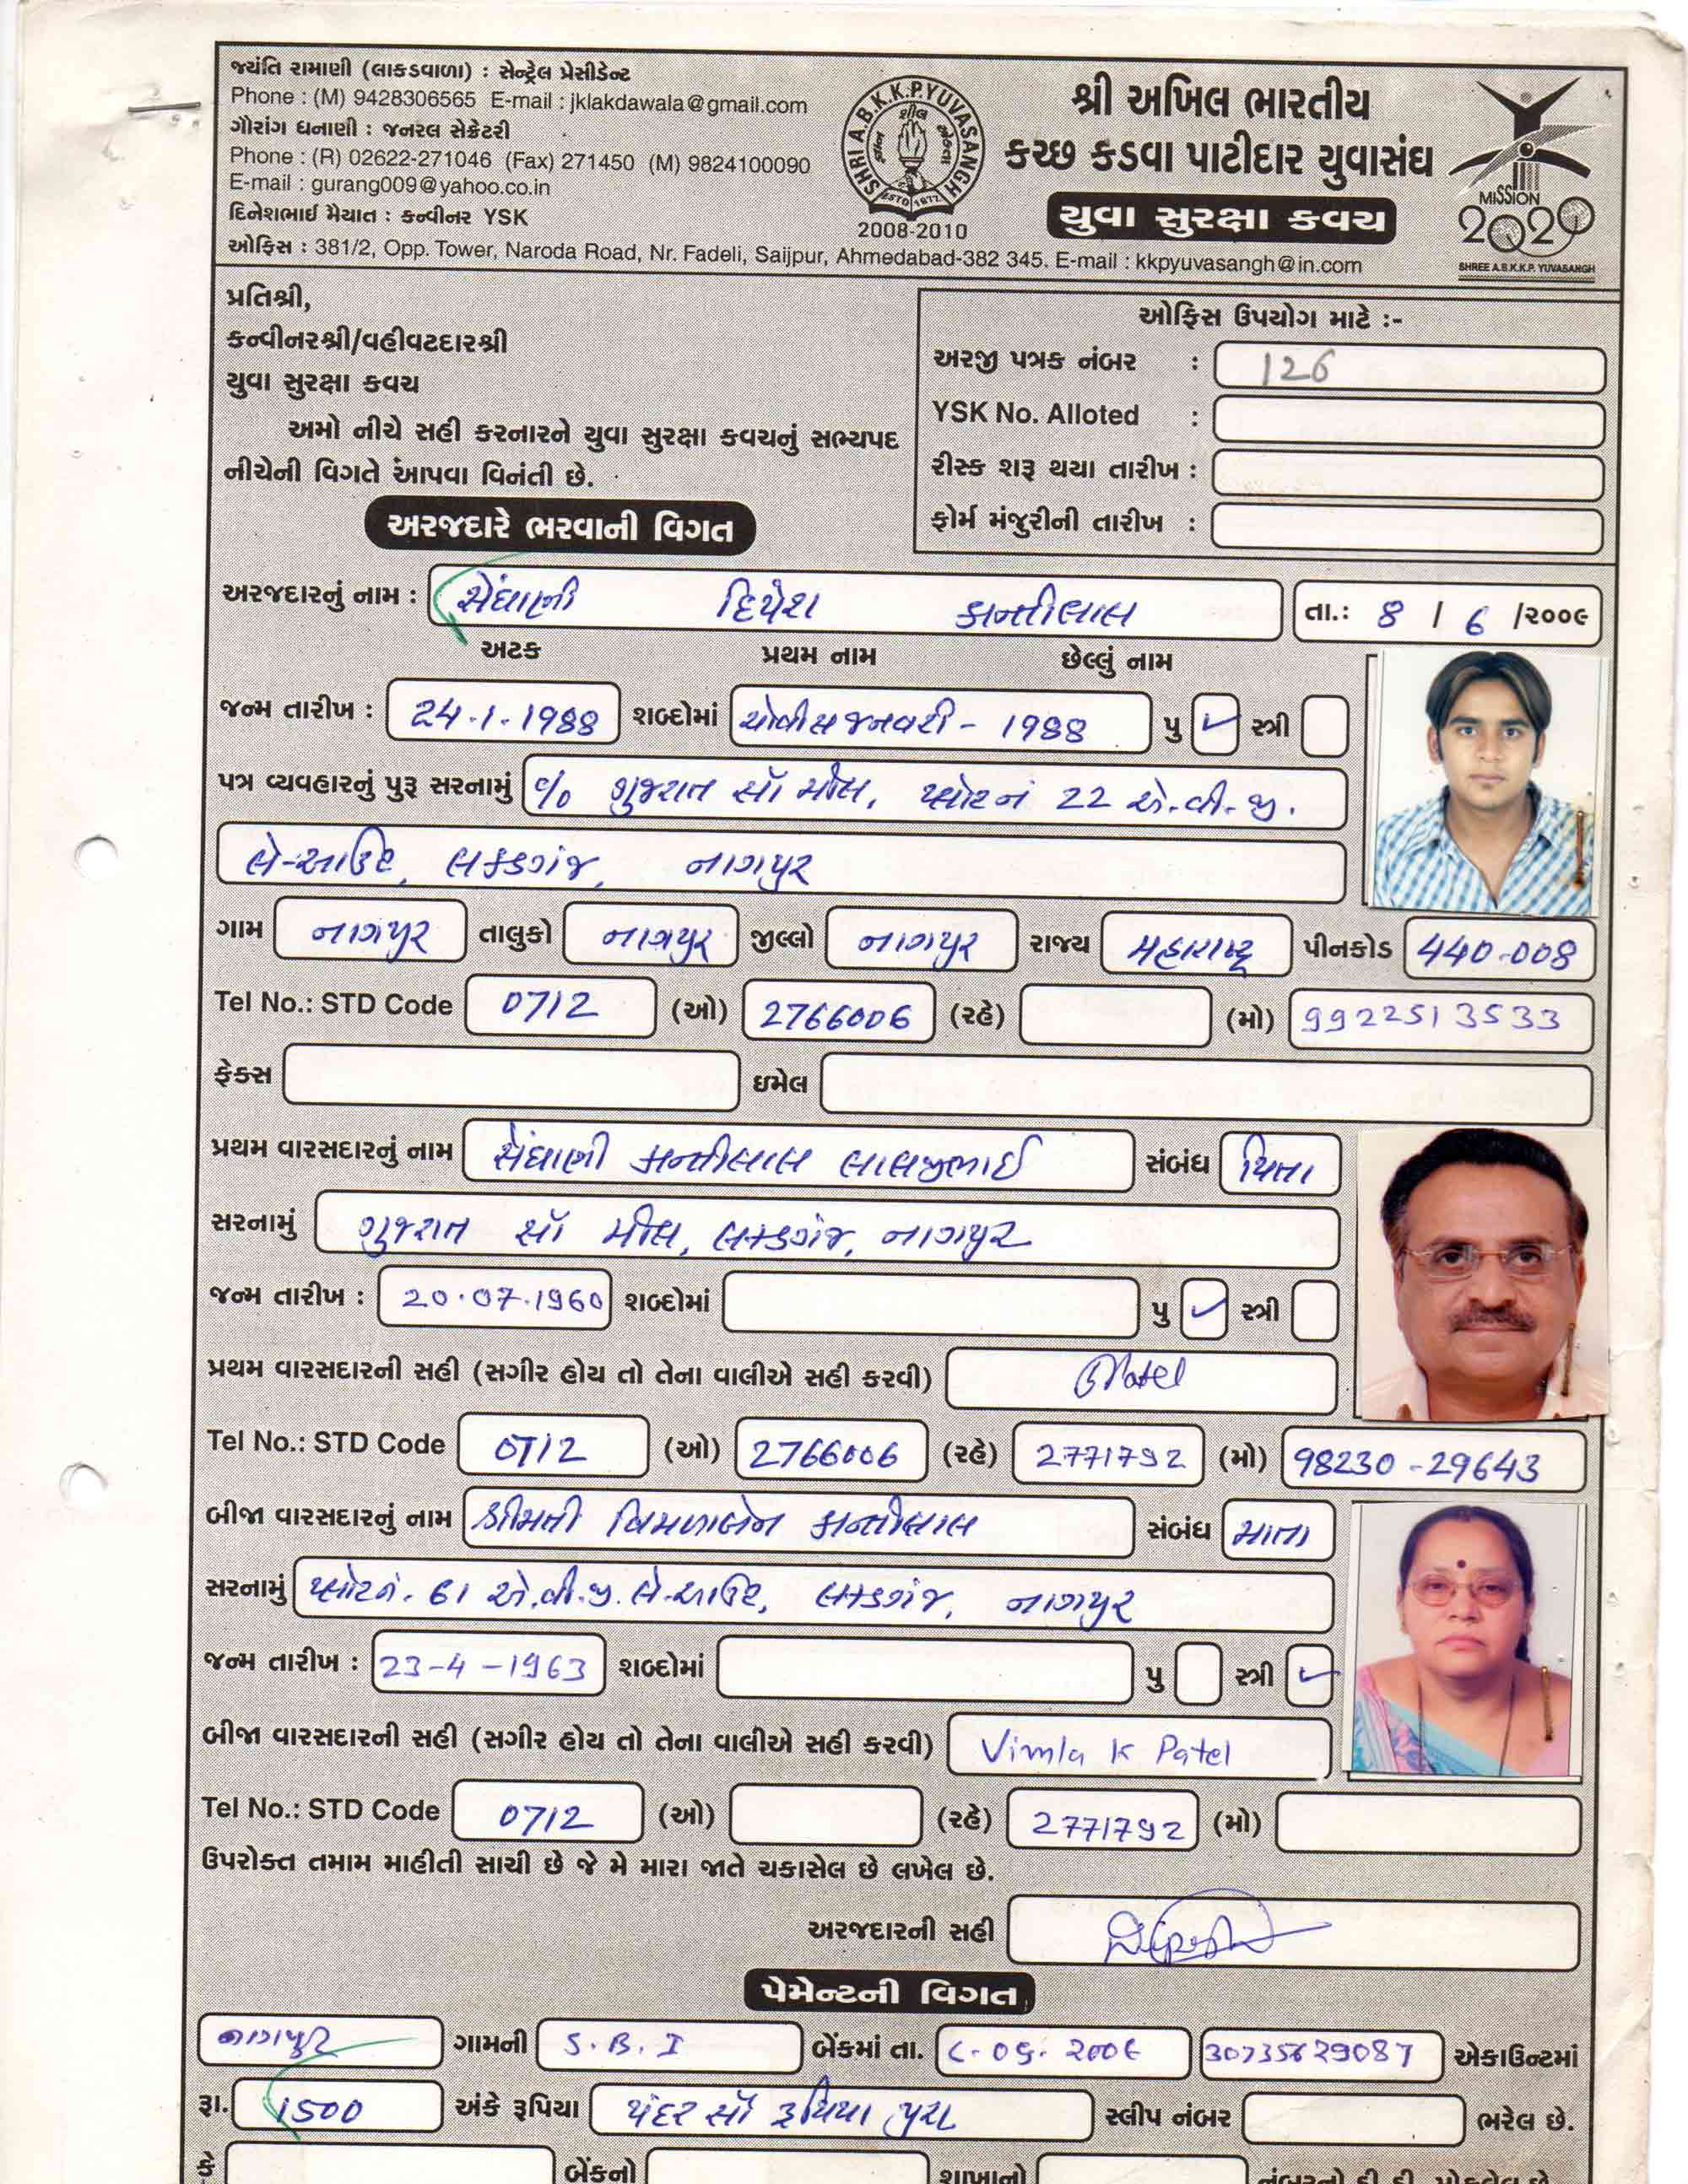 જયંતિ રામાણી (લાકડાવાળા) : સેન્ટ્રેલ પ્રેસીડેન્ટ
Phone : (M) 9428306565 E-mail : jklakdawala@gmail.com
ગૌરાંગ ધનાણી : જનરલ સેક્રેટરી
Phone : (R) 02622-271046 (Fax) 271450 (M) 9824100090
E-mail : gurang009@yahoo.co.in
દિનેશભાઈ મૈયાત : કન્વીનર YSK
ઓફિસ : 381/2, Opp. Tower, Naroda Road, Nr. Fadeli, Saijpur, Ahmedabad-382 345. E-mail : kkpyuvasangh@in.com
SHRI A.B.K.K.P. YUVASANGH
ESTD 1977
2008-2010
શ્રી અખિલ ભારતીય
કચ્છ કડવા પાટીદાર યુવાસંઘ
યુવા સુરક્ષા કવચ
MISSION
2020
SHREE A.B.K.K.P. YUVASANGH
પ્રતિશ્રી,
કન્વીનરશ્રી/વહીવટદારશ્રી
યુવા સુરક્ષા કવચ
અમો નીચે સહી કરનારને યુવા સુરક્ષા કવચનું સભ્યપદ
નીચેની વિગતે આપવા વિનંતી છે.
ઓફિસ ઉપયોગ માટે :-
અરજી પત્રક નંબર : 126
YSK No. Alloted :
રીસ્ક શરૂ થયા તારીખ :
ફોર્મ મંજુરીની તારીખ :
અરજદારે ભરવાની વિગત
અરજદારનું નામ : સેંઘાણી દિપેશ કાન્તીલાલ તા.: 8 / 6 /૨૦૦૯
અટક પ્રથમ નામ છેલ્લું નામ
જન્મ તારીખ : 24.1.1988 શબ્દોમાં ચોવીસ જનવરી - 1988 પુ ✓ સ્ત્રી
પત્ર વ્યવહારનું પુરૂ સરનામું c/o ગુજરાત સૉ મીલ, પ્લોટ નં 22 એ.વી.જી.
લે-આઉટ, લકડગંજ, નાગપુર
ગામ નાગપુર તાલુકો નાગપુર જીલ્લો નાગપુર રાજ્ય મહારાષ્ટ્ર પીનકોડ 440-008
Tel No.: STD Code 0712 (ઓ) 2766006 (રહે) (મો) 9922513533
ફેક્સ ઇમેલ
પ્રથમ વારસદારનું નામ સેંઘાણી કાન્તીલાલ લાલજીભાઈ સંબંધ પિતા
સરનામું ગુજરાત સૉ મીલ, લકડગંજ, નાગપુર
જન્મ તારીખ : 20.07.1960 શબ્દોમાં પુ ✓ સ્ત્રી
પ્રથમ વારસદારની સહી (સગીર હોય તો તેના વાલીએ સહી કરવી) Patel
Tel No.: STD Code 0712 (ઓ) 2766006 (રહે) 2771792 (મો) 98230-29643
બીજા વારસદારનું નામ શ્રીમતી વિમળાબેન કાન્તીલાલ સંબંધ માતા
સરનામું પ્લોટ નં. 61 એ.વી.જી. લે-આઉટ, લકડગંજ, નાગપુર
જન્મ તારીખ : 23-4-1963 શબ્દોમાં પુ સ્ત્રી ✓
બીજા વારસદારની સહી (સગીર હોય તો તેના વાલીએ સહી કરવી) Vimla K Patel
Tel No.: STD Code 0712 (ઓ) (રહે) 2771792 (મો)
ઉપરોક્ત તમામ માહીતી સાચી છે જે મે મારા જાતે ચકાસેલ છે લખેલ છે.
અરજદારની સહી
પેમેન્ટની વિગત
નાગપુર ગામની S.B.I બેંકમાં તા. 30735629087 એકાઉન્ટમાં
રૂા. 1500 અંકે રૂપિયા પંદર સૉ રૂપિયા પુરા સ્લીપ નંબર ભરેલ છે.
કે બેંકનો શાખાનો નંબરનો ડી.ડી. મોકલેલ છે.